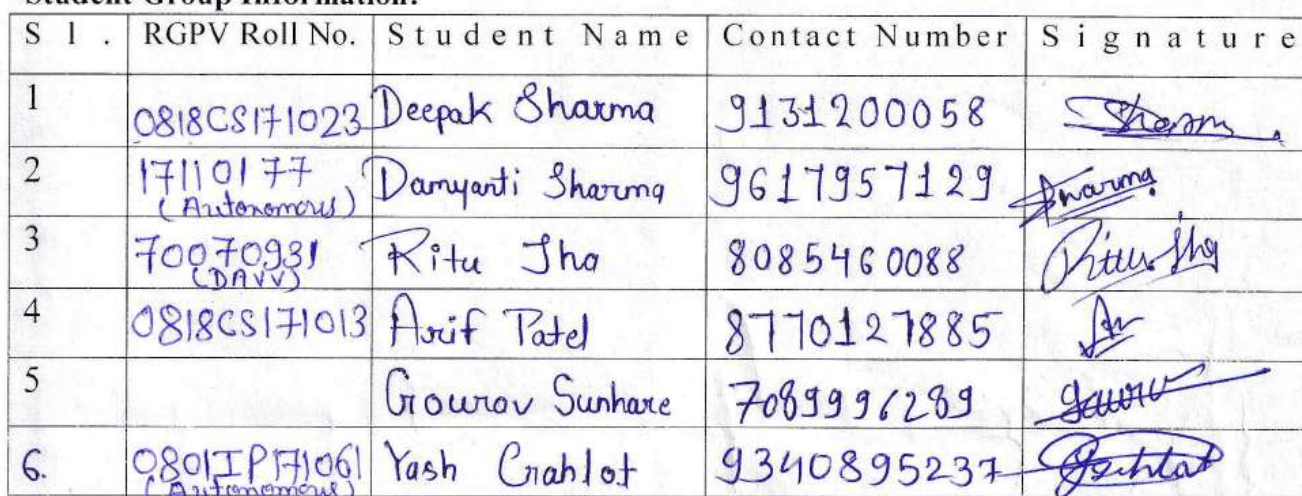 Student Group Information:
S l . RGPV Roll No. Student Name Contact Number Signature
1 0818CS171023 Deepak Sharma 9131200058 Sharma
2 17110177 (Autonomous) Damyanti Sharma 9617957129 Sharma
3 70070931 (DAVV) Ritu Jha 8085460088 Ritu Jha
4 0818CS171013 Arif Patel 8770127885
5 Gourav Sunhare 7089996289 Gaurav
6. 0801IP171061 (Autonomous) Yash Gahlot 9340895237 Gahlot